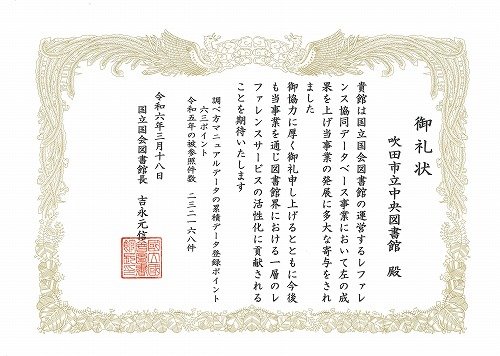 御礼状
吹田市立中央図書館 殿
貴館は国立国会図書館の運営するレファレ
ンス協同データベース事業において左の成
果を上げ当事業の発展に多大な寄与をされ
ました
御協力に厚く御礼申し上げるとともに今後
も当事業を通じ図書館界における一層のレ
ファレンスサービスの活性化に貢献される
ことを期待いたします
調べ方マニュアルデータの累積データ登録ポイント
六三ポイント
令和五年の被参照件数 二三二一六八件
令和六年三月十八日
国立国会図書館長 吉永元信